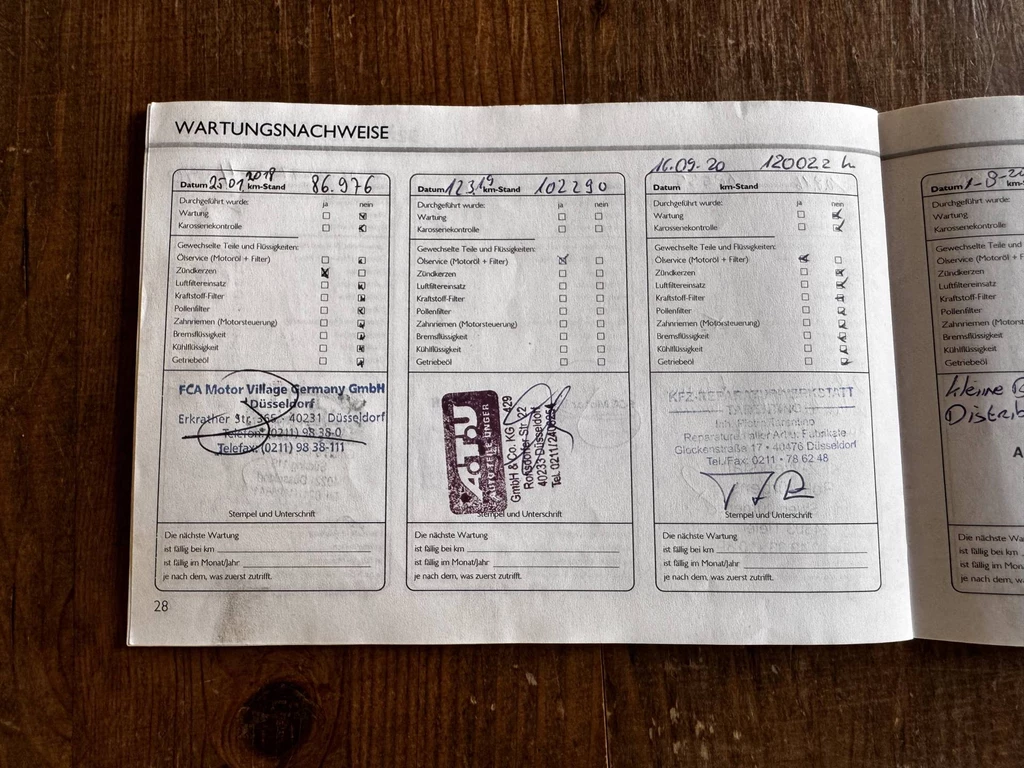 WARTUNGSNACHWEISE
Datum 25 01 2018 km-Stand 86.976
Durchgeführt wurde: ja nein
Wartung
Karosseriekontrolle
Gewechselte Teile und Flüssigkeiten:
Ölservice (Motoröl + Filter)
Zündkerzen
Luftfiltereinsatz
Kraftstoff-Filter
Pollenfilter
Zahnriemen (Motorsteuerung)
Bremsflüssigkeit
Kühlflüssigkeit
Getriebeöl
FCA Motor Village Germany GmbH
Düsseldorf
Erkrather Str. 365 · 40231 Düsseldorf
Telefon: (0211) 98 38-0
Telefax: (0211) 98 38-111
Stempel und Unterschrift
Die nächste Wartung
ist fällig bei km
ist fällig im Monat/Jahr
je nach dem, was zuerst zutrifft.
28
Datum 12 3 19 km-Stand 102290
Durchgeführt wurde: ja nein
Wartung
Karosseriekontrolle
Gewechselte Teile und Flüssigkeiten:
Ölservice (Motoröl + Filter)
Zündkerzen
Luftfiltereinsatz
Kraftstoff-Filter
Pollenfilter
Zahnriemen (Motorsteuerung)
Bremsflüssigkeit
Kühlflüssigkeit
Getriebeöl
AUTOTEILE UNGER
GmbH & Co. KG 429
40233 Düsseldorf
Stempel und Unterschrift
Die nächste Wartung
ist fällig bei km
ist fällig im Monat/Jahr
je nach dem, was zuerst zutrifft.
16.09.20 120022
Datum km-Stand
Durchgeführt wurde: ja nein
Wartung
Karosseriekontrolle
Gewechselte Teile und Flüssigkeiten:
Ölservice (Motoröl + Filter)
Zündkerzen
Luftfiltereinsatz
Kraftstoff-Filter
Pollenfilter
Zahnriemen (Motorsteuerung)
Bremsflüssigkeit
Kühlflüssigkeit
Getriebeöl
Reparaturen aller Art u. Fabrikate
Glockenstraße 17 · 40476 Düsseldorf
Tel./Fax: 0211 · 78 62 48
Stempel und Unterschrift
Die nächste Wartung
ist fällig bei km
ist fällig im Monat/Jahr
je nach dem, was zuerst zutrifft.
Datum
Durchgeführt wurde:
Wartung
Karosseriekontrolle
Gewechselte Teile und
Ölservice (Motoröl + F
Zündkerzen
Luftfiltereinsatz
Kraftstoff-Filter
Pollenfilter
Zahnriemen (Motorst
Bremsflüssigkeit
Kühlflüssigkeit
Getriebeöl
kleine
Distrib
Die nächste Wa
ist fällig bei km
ist fällig im Mon
je nach dem, w